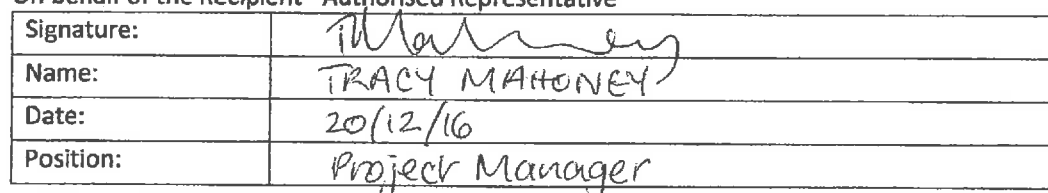 On behalf of the Recipient - Authorised Representative
Signature: TMahoney
Name: TRACY MAHONEY
Date: 20/12/16
Position: Project Manager